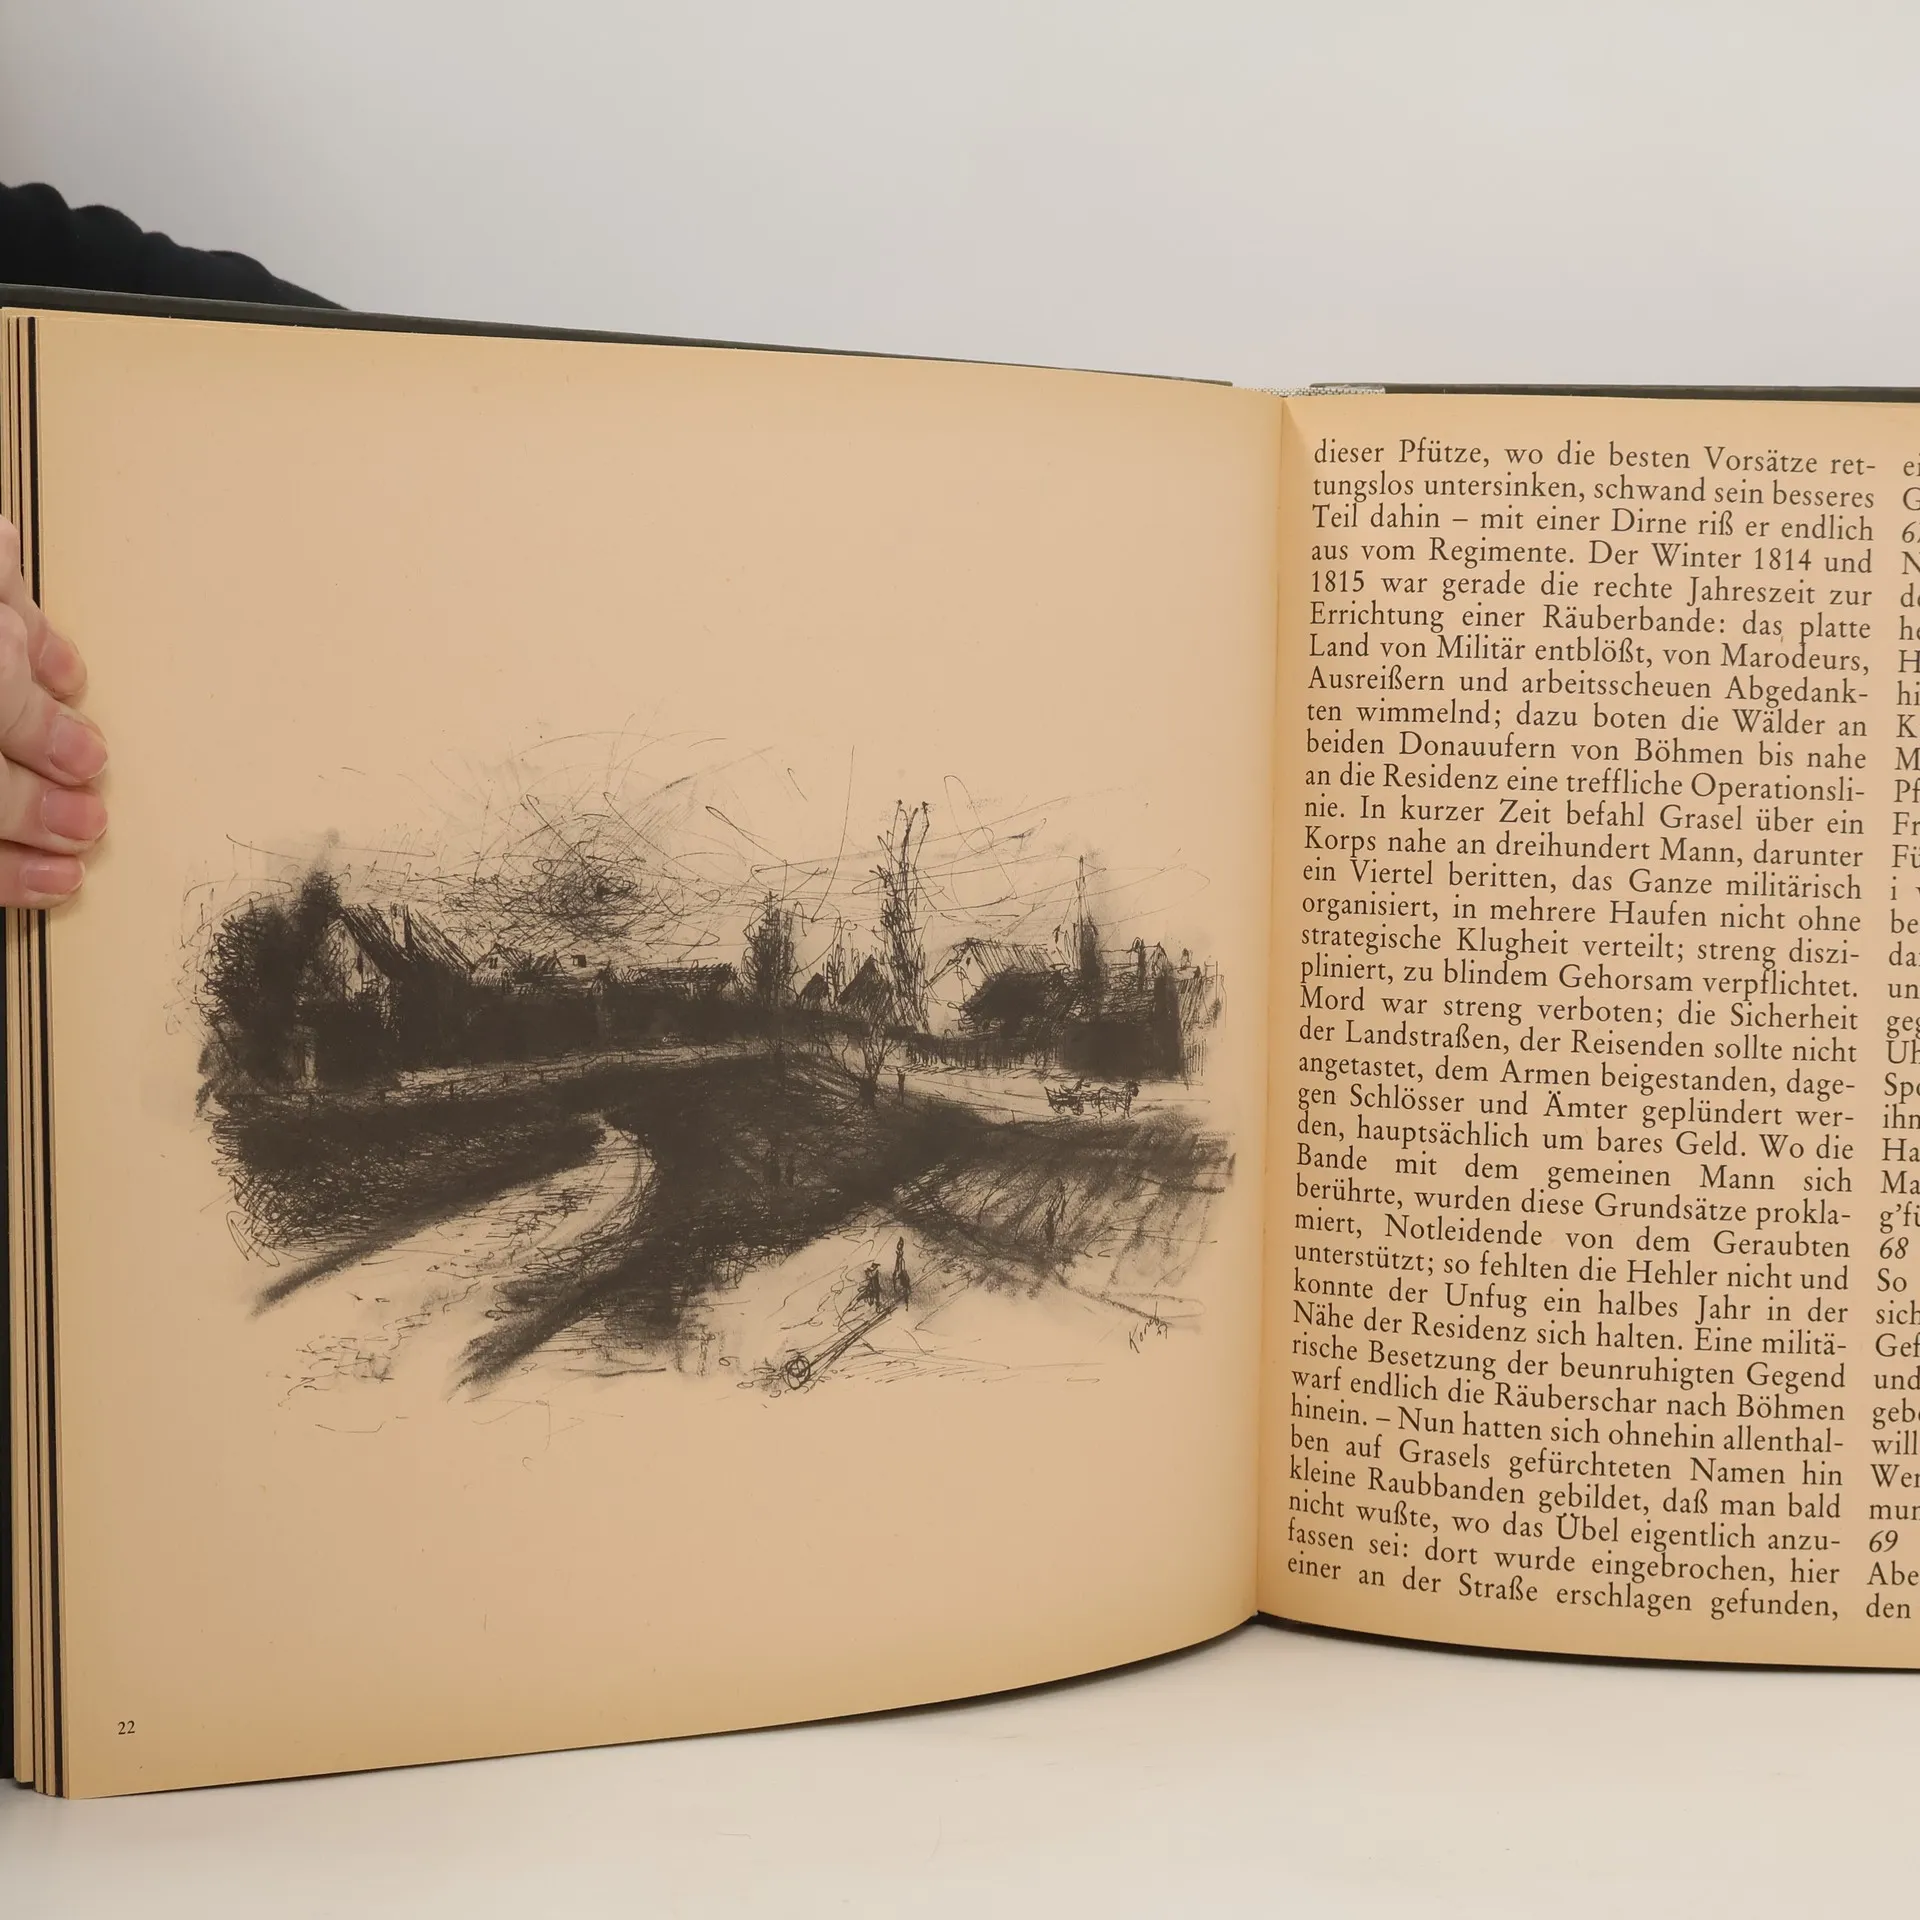 22
dieser Pfütze, wo die besten Vorsätze ret-
tungslos untersinken, schwand sein besseres
Teil dahin – mit einer Dirne riß er endlich
aus vom Regimente. Der Winter 1814 und
1815 war gerade die rechte Jahreszeit zur
Errichtung einer Räuberbande: das platte
Land von Militär entblößt, von Marodeurs,
Ausreißern und arbeitsscheuen Abgedank-
ten wimmelnd; dazu boten die Wälder an
beiden Donauufern von Böhmen bis nahe
an die Residenz eine treffliche Operationsli-
nie. In kurzer Zeit befahl Grasel über ein
Korps nahe an dreihundert Mann, darunter
ein Viertel beritten, das Ganze militärisch
organisiert, in mehrere Haufen nicht ohne
strategische Klugheit verteilt; streng diszi-
pliniert, zu blindem Gehorsam verpflichtet.
Mord war streng verboten; die Sicherheit
der Landstraßen, der Reisenden sollte nicht
angetastet, dem Armen beigestanden, dage-
gen Schlösser und Ämter geplündert wer-
den, hauptsächlich um bares Geld. Wo die
Bande mit dem gemeinen Mann sich
berührte, wurden diese Grundsätze prokla-
miert, Notleidende von dem Geraubten
unterstützt; so fehlten die Hehler nicht und
konnte der Unfug ein halbes Jahr in der
Nähe der Residenz sich halten. Eine militä-
rische Besetzung der beunruhigten Gegend
warf endlich die Räuberschar nach Böhmen
hinein. – Nun hatten sich ohnehin allenthal-
ben auf Grasels gefürchteten Namen hin
kleine Raubbanden gebildet, daß man bald
nicht wußte, wo das Übel eigentlich anzu-
fassen sei: dort wurde eingebrochen, hier
einer an der Straße erschlagen gefunden,
68
So
69
den